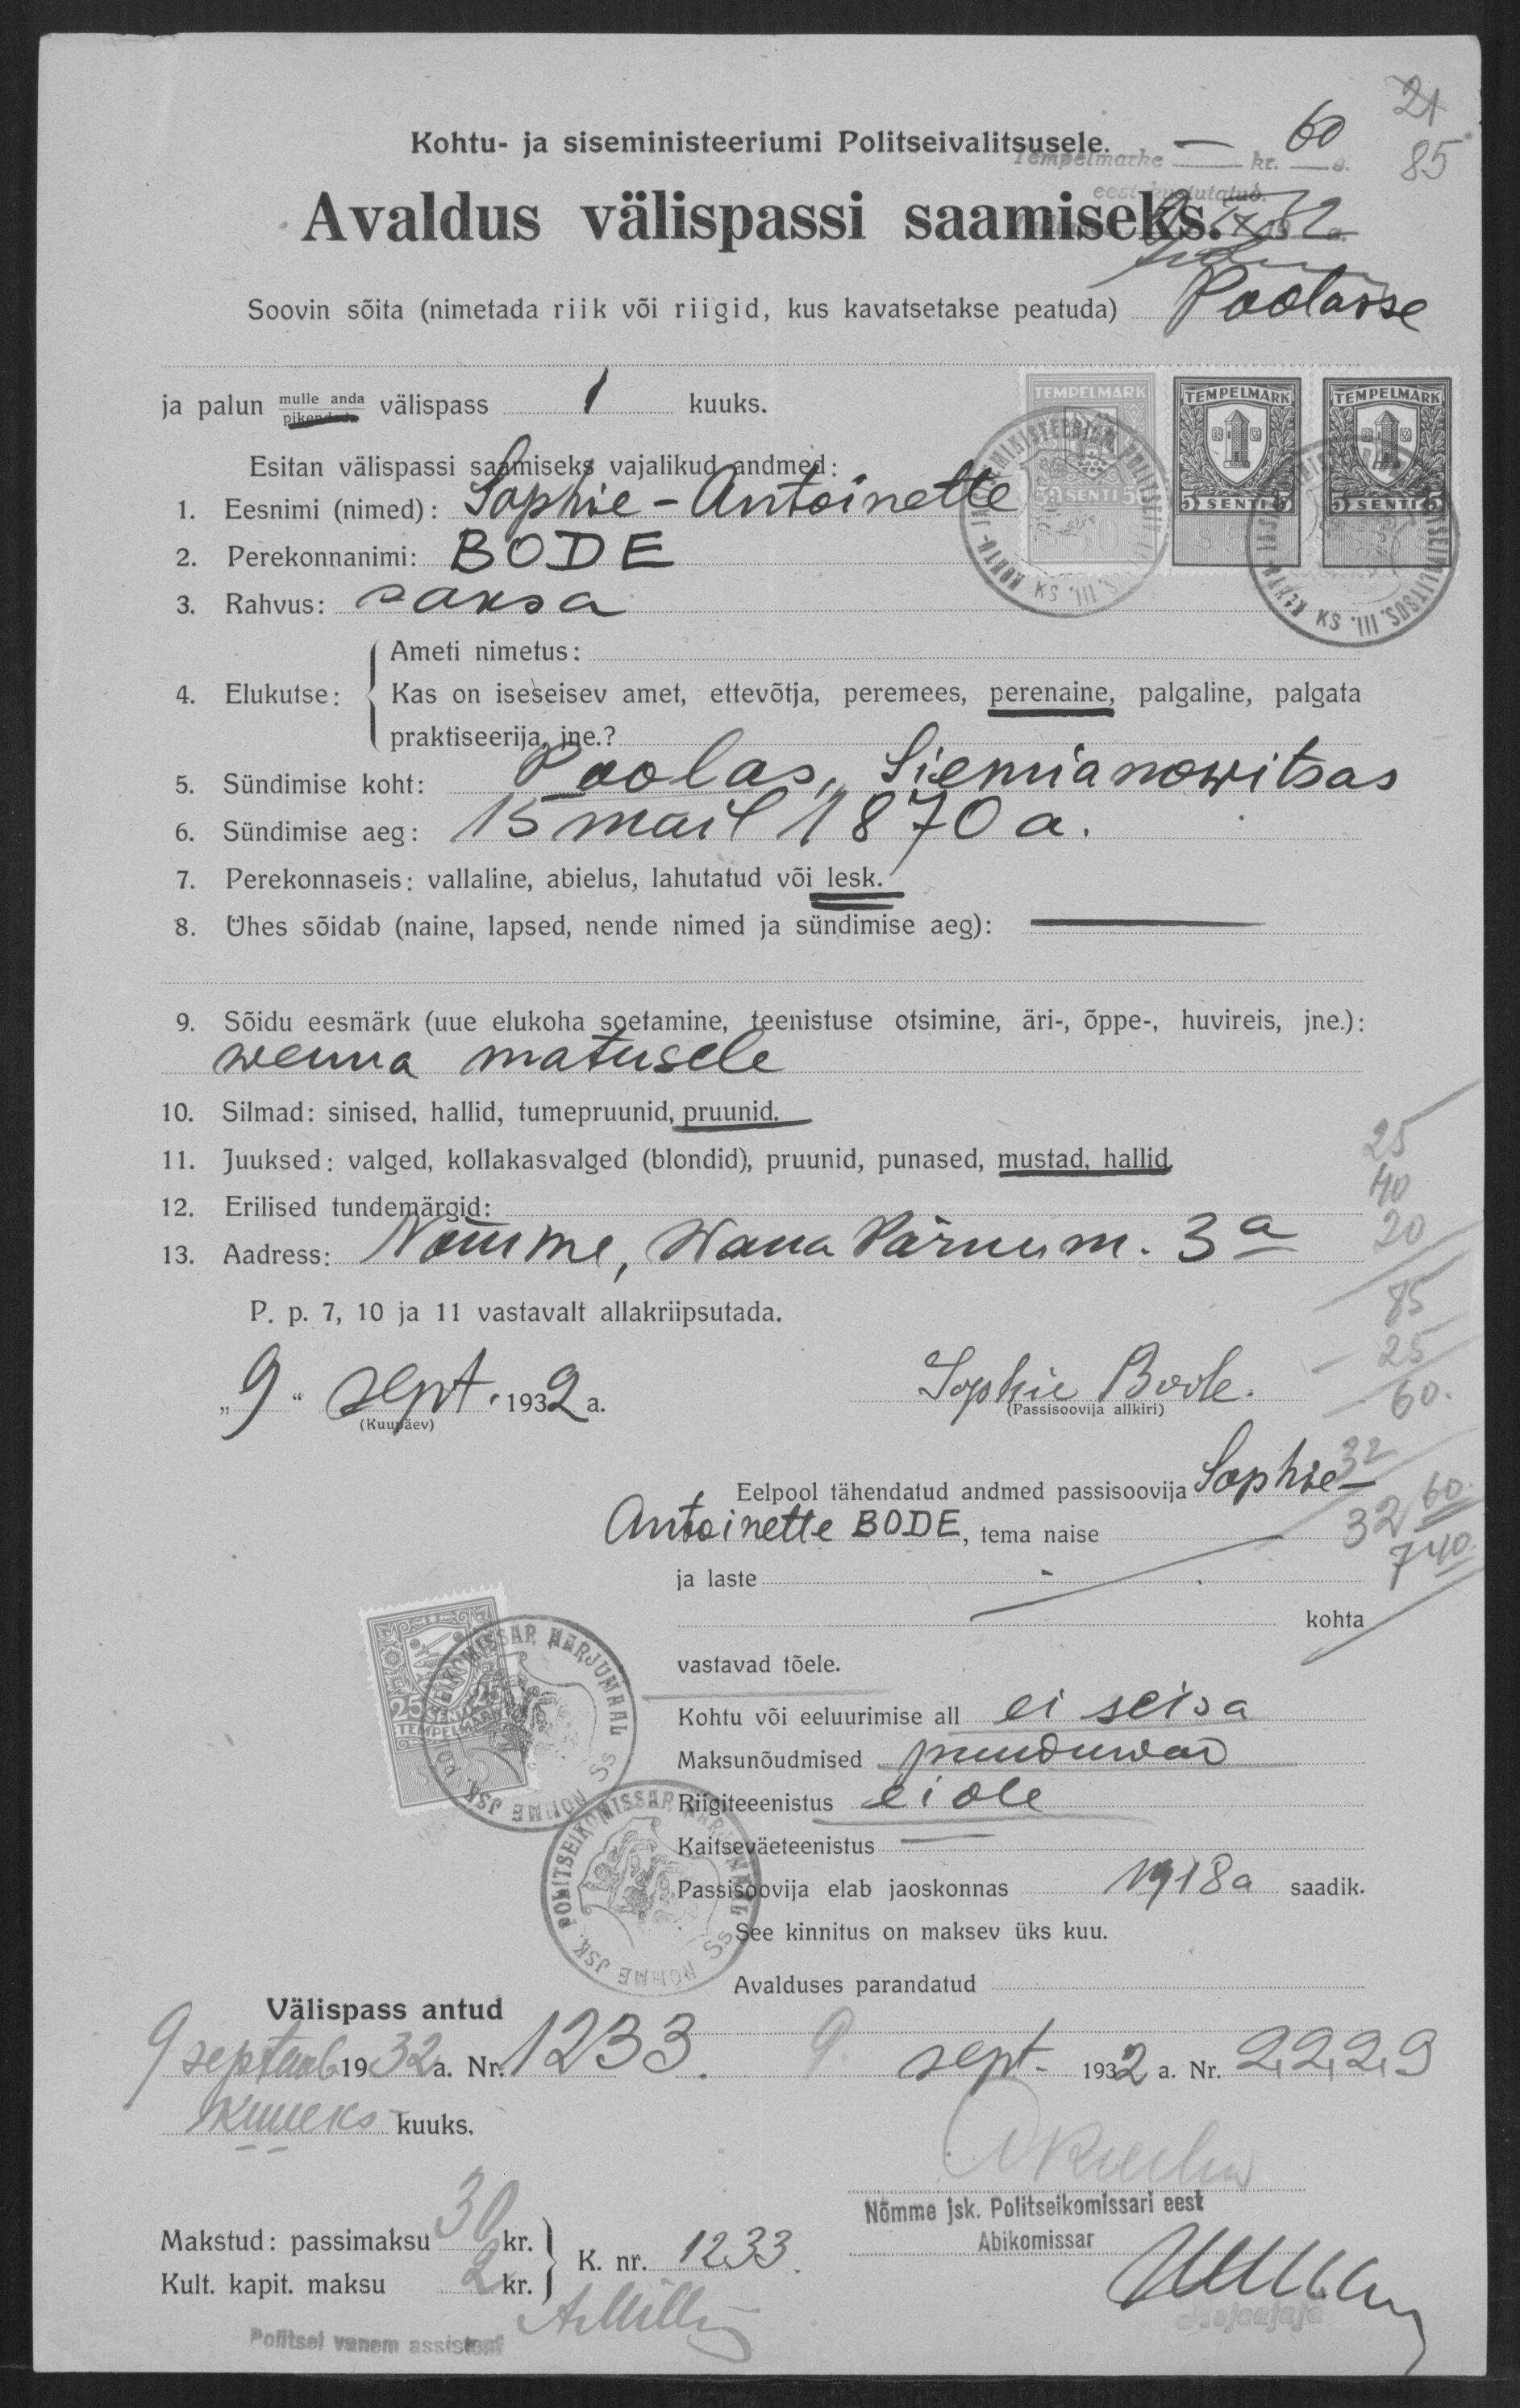 21
85
Kohtu- ja siseministeeriumi Politseivalitsusele.
Tempelmarke — kr. 60 s.
eest kustutatud.
Avaldus välispassi saamiseks.
Soovin sõita (nimetada riik või riigid, kus kavatsetakse peatuda) Poolasse
ja palun mulle anda pikendada välispass 1 kuuks.
TEMPELMARK
TEMPELMARK
TEMPELMARK
50 SENTI 50
5 SENTI 5
5 SENTI 5
Esitan välispassi saamiseks vajalikud andmed:
1. Eesnimi (nimed): Sophie-Antoinette
2. Perekonnanimi: BODE
3. Rahvus: saksa
4. Elukutse: Ameti nimetus:
Kas on iseseisev amet, ettevõtja, peremees, perenaine, palgaline, palgata
praktiseerija, jne.?
5. Sündimise koht: Poolas, Siemianowitsas
6. Sündimise aeg: 15 mail 1870 a.
7. Perekonnaseis: vallaline, abielus, lahutatud või lesk.
8. Ühes sõidab (naine, lapsed, nende nimed ja sündimise aeg): —
9. Sõidu eesmärk (uue elukoha soetamine, teenistuse otsimine, äri-, õppe-, huvireis, jne.):
wenna matusele
10. Silmad: sinised, hallid, tumepruunid, pruunid.
11. Juuksed: valged, kollakasvalged (blondid), pruunid, punased, mustad, hallid,
12. Erilised tundemärgid:
13. Aadress: Nõmme, Wana Pärnu m. 3a
25
40
20
85
- 25
60.
P. p. 7, 10 ja 11 vastavalt allakriipsutada.
„9“ sept. 1932 a.
(Kuupäev)
Sophie Bode.
(Passisoovija allkiri)
32
32 60.
7 40.
Eelpool tähendatud andmed passisoovija Sophie-
Antoinette BODE, tema naise
ja laste
kohta
vastavad tõele.
25 SENTI 25
TEMPELMARK
POLITSEIKOMISSAR HARJUMAAL
NÕMME JSK.
Kohtu või eeluurimise all ei seisa
Maksunõudmised puuduwad
Riigiteeenistus ei ole
Kaitseväeteenistus —
POLITSEIKOMISSAR HARJUMAAL
NÕMME JSK.
Passisoovija elab jaoskonnas 1918 a saadik.
See kinnitus on maksev üks kuu.
Avalduses parandatud
Välispass antud
9 septemb 1932 a. Nr. 1233.
kuueks kuuks.
9. sept. 1932 a. Nr. 2229
Nõmme jsk. Politseikomissari eest
Abikomissar
Makstud: passimaksu 30 kr.
Kult. kapit. maksu 2 kr.
K. nr. 1233.
Politsei vanem assistent
Asjaajaja